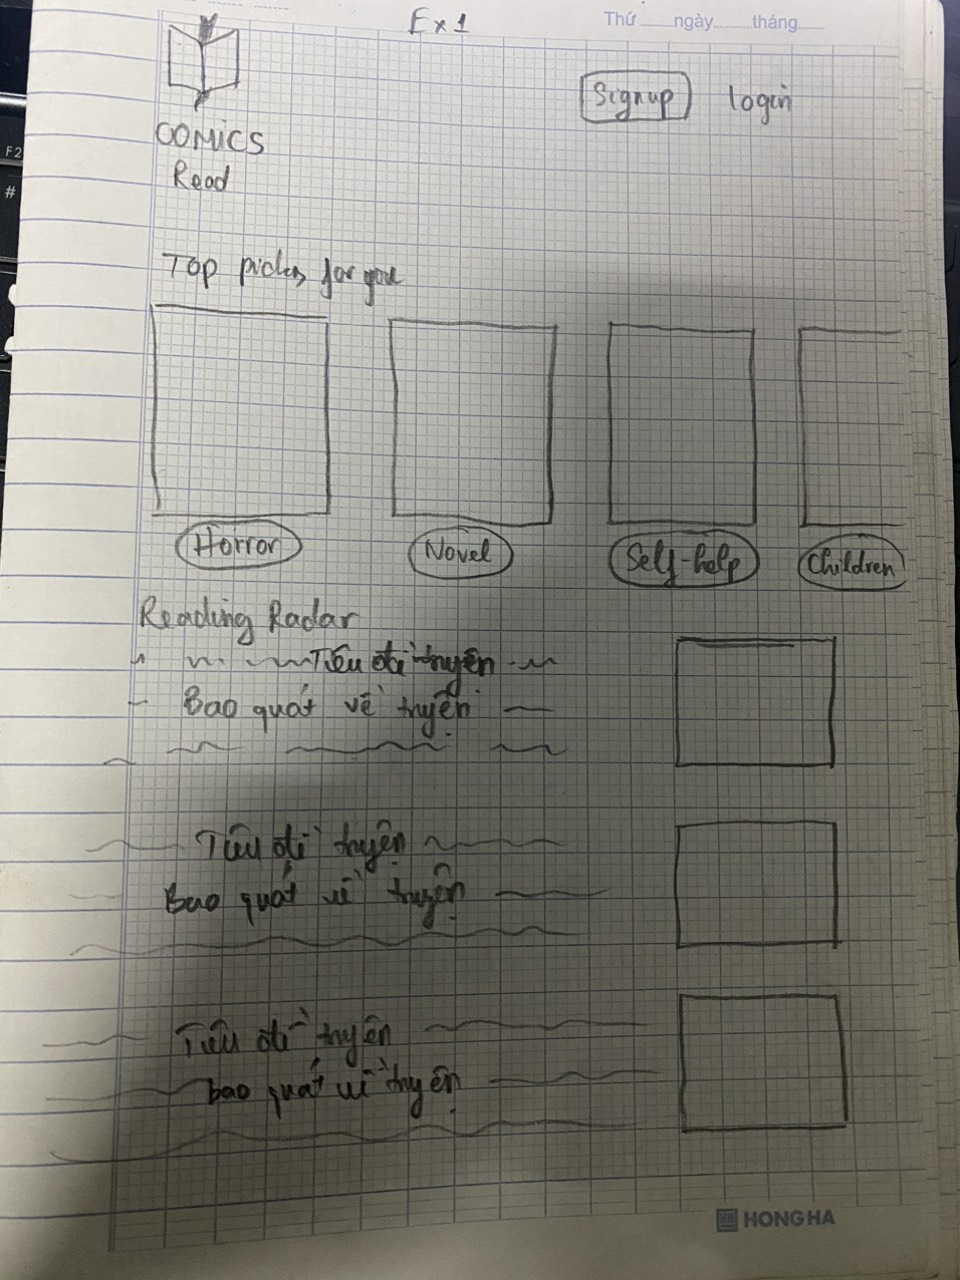 Ex1
Thứ ngày tháng
Signup login
COMICS
Read
Top picks for you
Horror Novel Self-help Children
Reading Radar
Tiêu đề truyện
Bao quát về truyện
Tiêu đề truyện
Bao quát về truyện
Tiêu đề truyện
bao quát về truyện
HONG HA
F2
#